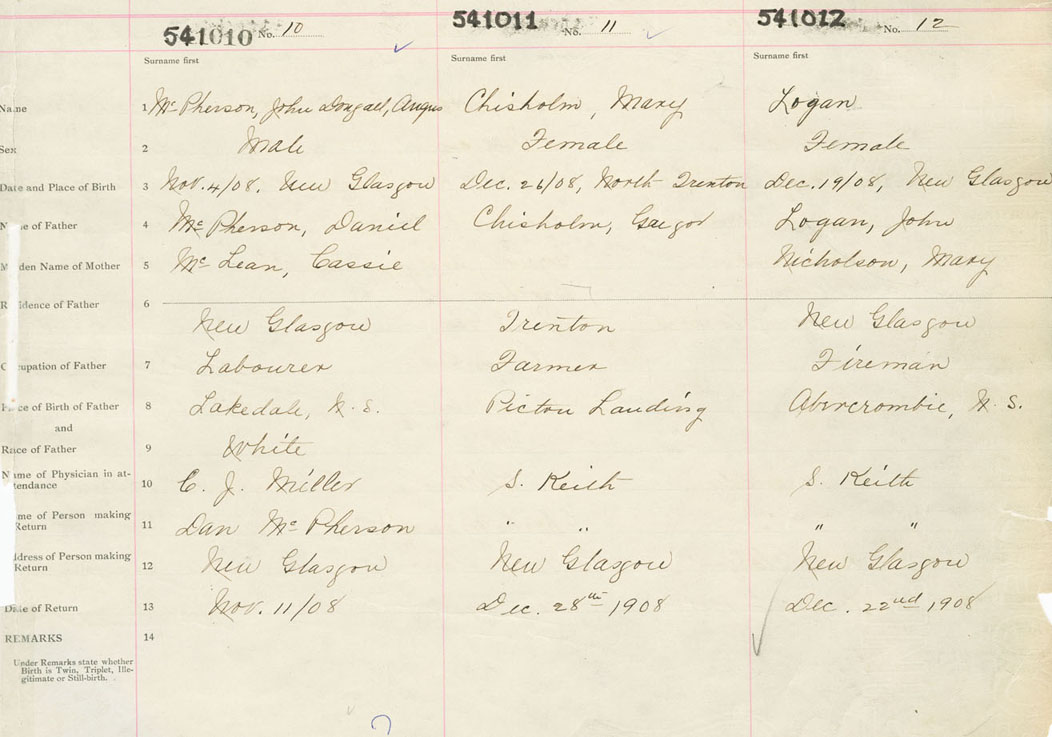 541010 No. 10 541011 No. 11 541012 No. 12
Surname first Surname first Surname first
Name 1 Mc Pherson, John Dongall, Angus Chisholm, Mary Logan
Sex 2 Male Female Female
Date and Place of Birth 3 Nov. 4/08, New Glasgow Dec. 26/08, North Trenton Dec. 19/08, New Glasgow
Name of Father 4 Mc Pherson, Daniel Chisholm, Gregor Logan, John
Maiden Name of Mother 5 Mc Lean, Cassie Nicholson, Mary
Residence of Father 6
New Glasgow Trenton New Glasgow
Occupation of Father 7 Labourer Farmer Fireman
Place of Birth of Father 8 Lakedale, N.S. Pictou Landing Abercrombie, N.S.
and
Race of Father 9 White
Name of Physician in at-
tendance 10 C. J. Miller S. Keith S. Keith
Name of Person making
Return 11 Dan Mc Pherson " " " "
Address of Person making
Return 12 New Glasgow New Glasgow New Glasgow
Date of Return 13 Nov. 11/08 Dec. 28th 1908 Dec. 22nd 1908
REMARKS 14
Under Remarks state whether
Birth is Twin, Triplet, Ille-
gitimate or Still-birth.